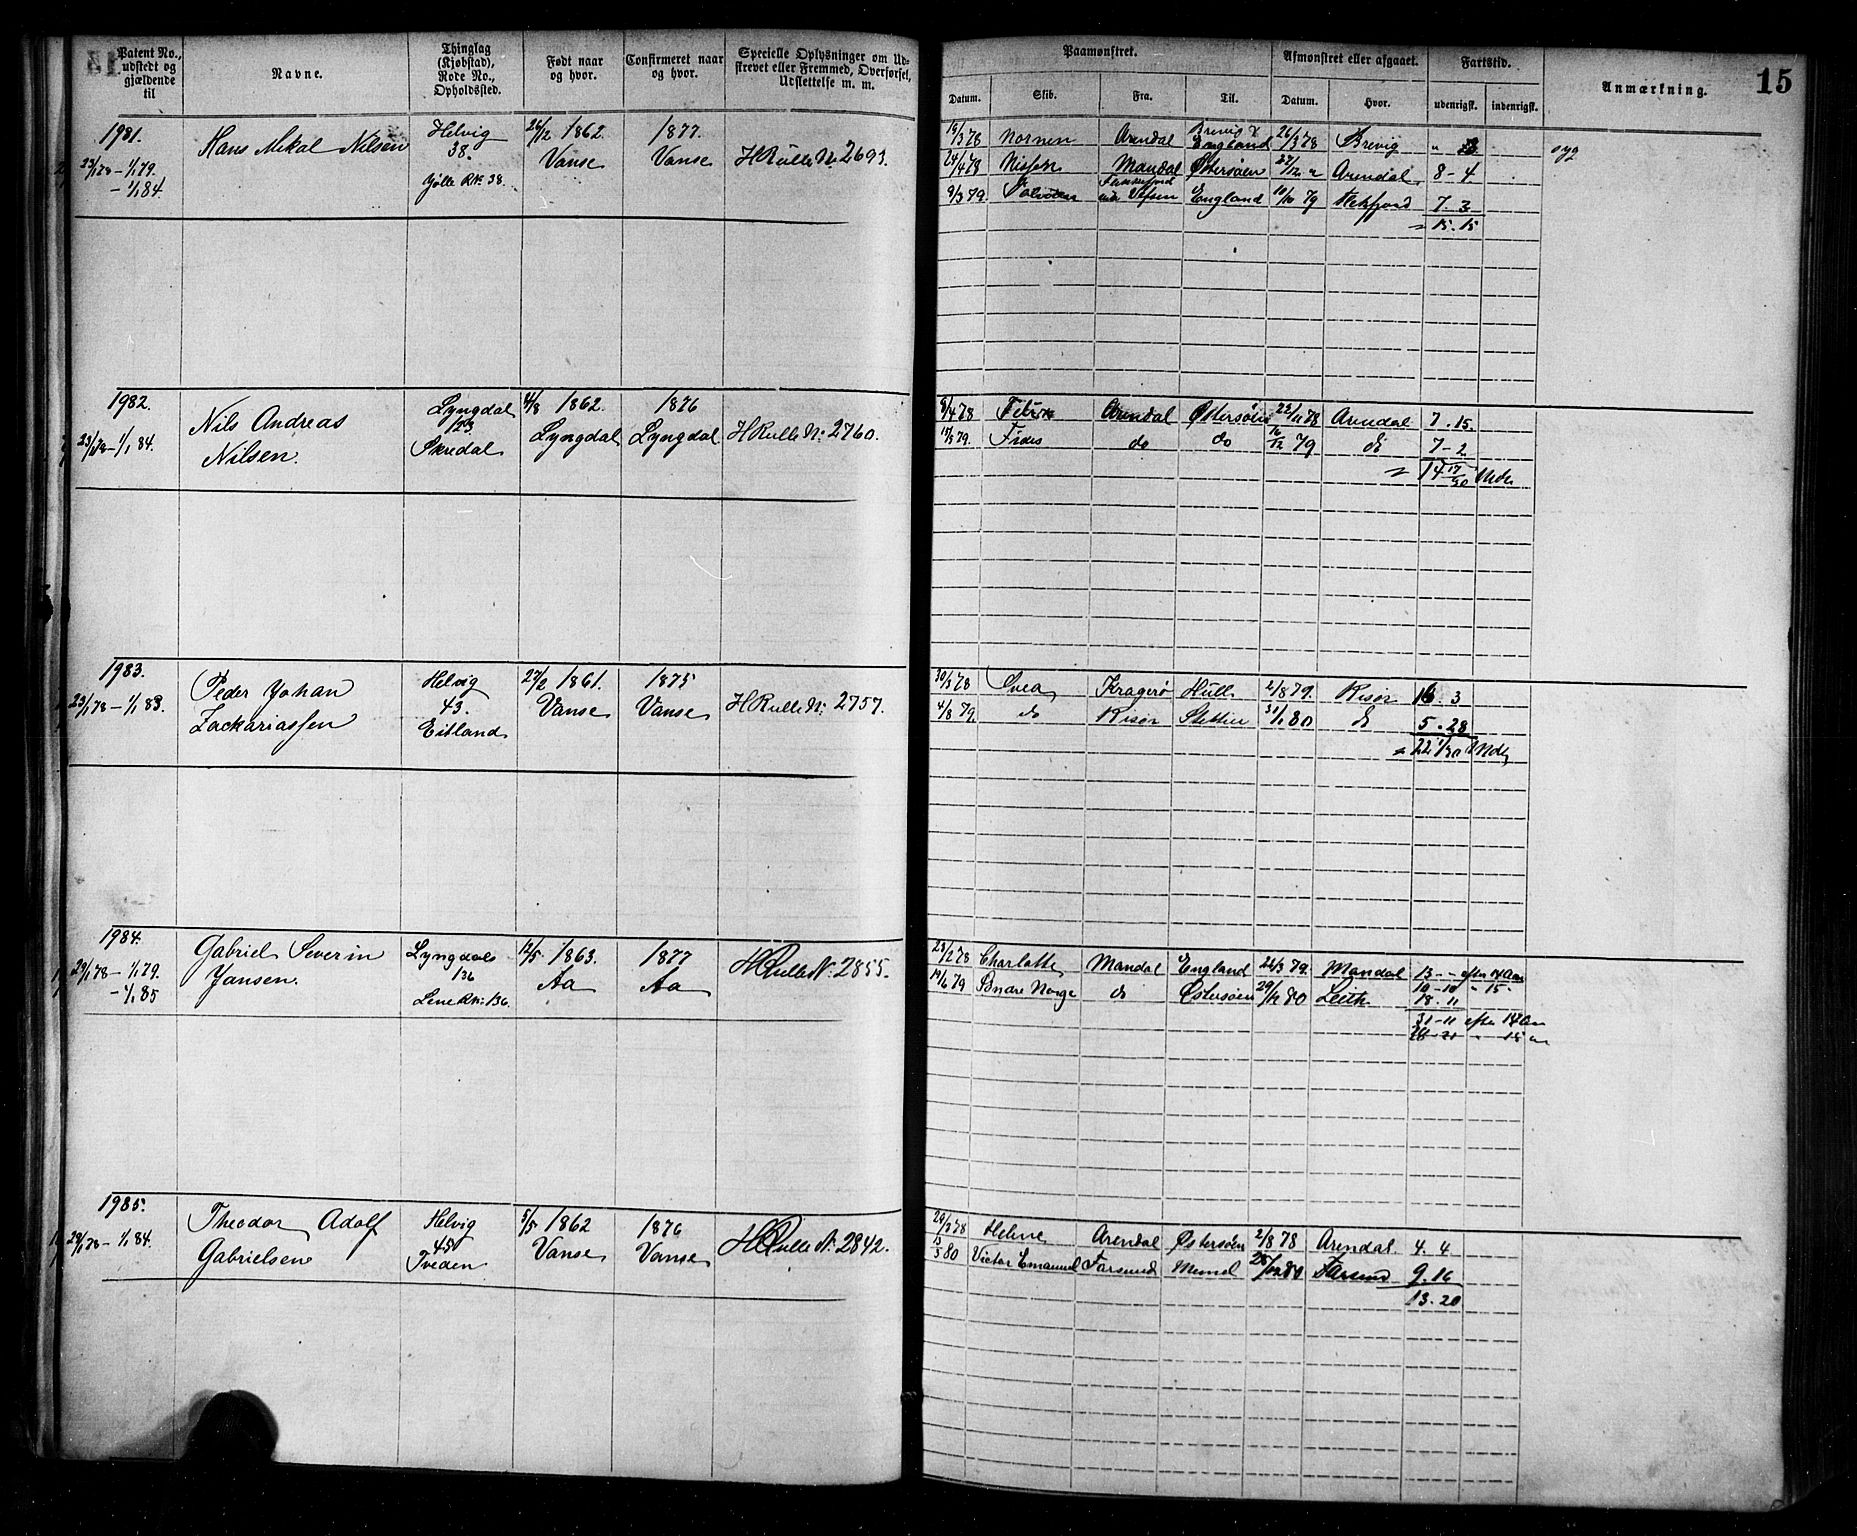 Patent No., udstedt og gjældende til
Navne.
Thinglag (Kjøbstad), Rode No., Opholdssted.
Født naar og hvor.
Confirmeret naar og hvor.
Specielle Oplysninger om Udskrevet eller Fremmed, Overførsel, Udslettelse m. m.
Paamønstret.
Afmønstret eller afgaaet.
Fartstid.
Anmærkning.
15
Datum.
Skib.
Fra.
Til.
Datum.
Hvor.
udenrigsk.
indenrigsk.
1981.
23/1 78 - 1/1 79.
- 1/1 84.
Hans Mekal Nilsen
Helvig
38.
Gjølle RNo 38.
26/12 1862.
Vanse
1877.
Vanse
HRulle No 2693.
18/3 78 Nornen Arendal Brevig & England 26/3 78 Brevig
syg
24/4 78 Nissen Mandal Østersøen 27/12 " Arendal 8 - 4
9/3 79. Vefsen England 10/10 79 Flekfjord 7. 3
15. 15
1982.
23/1 78 - 1/1 84.
Nils Andreas
Nilsen.
Lyngdal
123.
Skredal
4/8 1862.
Lyngdal
1876
Lyngdal
HRulle No 2760.
9/4 78 Arendal Østersøen 22/11 78 Arendal 7. 15.
15/5 79. Frides do do 16/12 79 do 7 - 2
14 17/30 Mdr
1983.
23/1 78 - 1/1 83.
Peder Johan
Zackariassen
Helvig
43.
Eitland
27/2 1861.
Vanse
1875
Vanse
HRulle No 2757.
30/3 78 Svea Kragerø Hull 2/8 79. Risør 16. 3
4/8 79. do Risør Stettin 31/1 80 do 5. 28
22 1/30 Mdr
1984.
29/1 78 - 1/1 79.
- 1/1 85
Gabriel Severin
Jansen.
Lyngdals
136
Lene RNo 136.
12/5 1863.
Aa
1877
Aa
HRulle No 2855.
23/2 78 Charlotte Mandal England 22/3 79. Mandal 13 - - efter 14 Aar
10 - 10 " 15 "
19/6 79 Søndre Norge do Østersøen 29/12 80 Leith 18. 11
31 - 11 efter 14 Aar
1985.
29/1 78 - 1/1 84.
Theodor Adolf
Gabrielsen
Helvig
45
Tveden
5/5 1862
Vanse
1876
Vanse
HRulle No 2842.
20/3 78 Helene Arendal Østersøen 2/8 78 Arendal 4. 4
13/3 80 Victor Emanuel Farsund Memel Farsund 9. 16
13. 20